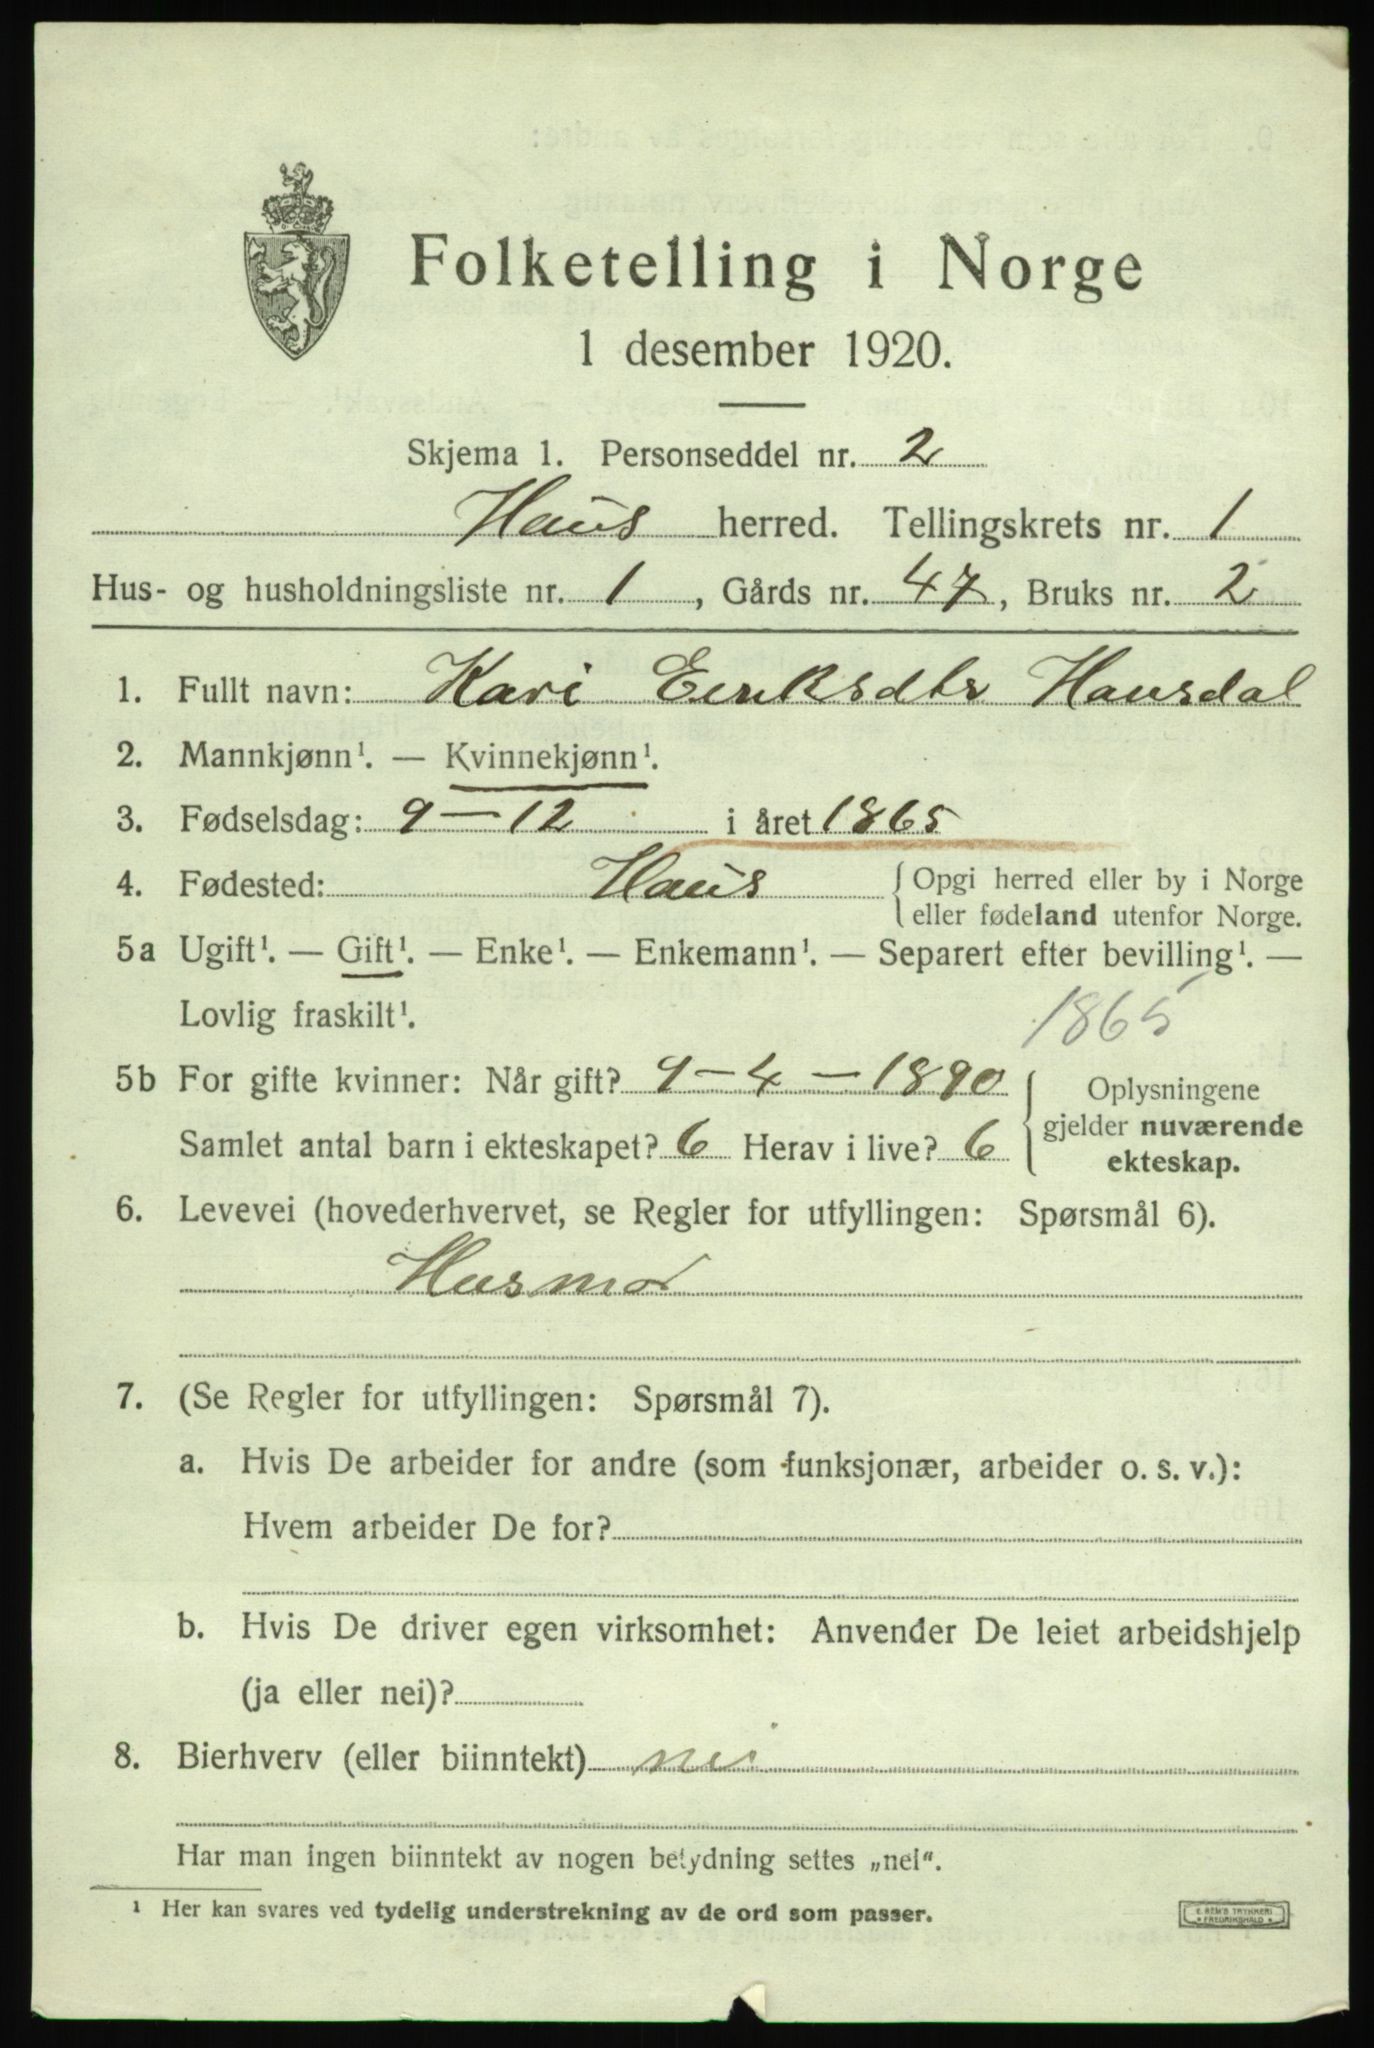 Folketelling i Norge
1 desember 1920.
Skjema 1. Personseddel nr. 2
Haus herred. Tellingskrets nr. 1
Hus- og husholdningsliste nr. 1, Gårds nr. 47, Bruks nr. 2
1. Fullt navn: Kari Eriksdtr Hausdal
2. Mannkjønn¹. — Kvinnekjønn¹.
3. Fødselsdag: 9 — 12 i året 1865
4. Fødested: Haus { Opgi herred eller by i Norge
eller fødeland utenfor Norge.
5a Ugift¹. — Gift¹. — Enke¹. — Enkemann¹. — Separert efter bevilling¹. —
Lovlig fraskilt¹.
1865
5b For gifte kvinner: Når gift? 9 — 4 — 1890
Samlet antal barn i ekteskapet? 6 Herav i live? 6
{ Oplysningene
gjelder nuværende
ekteskap.
6. Levevei (hovederhvervet, se Regler for utfyllingen: Spørsmål 6).
Husmor
7. (Se Regler for utfyllingen: Spørsmål 7).
a. Hvis De arbeider for andre (som funksjonær, arbeider o. s. v.):
Hvem arbeider De for?
b. Hvis De driver egen virksomhet: Anvender De leiet arbeidshjelp
(ja eller nei)?
8. Bierhverv (eller biinntekt) nei
Har man ingen biinntekt av nogen betydning settes „nei“.
¹ Her kan svares ved tydelig understrekning av de ord som passer.
E. SEM'S TRYKKERI
* FREDRIKSHALD *